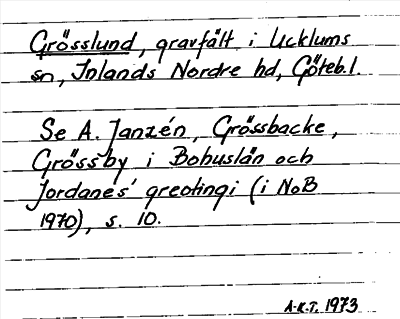 Grösslund, gravfält i Ucklums
sn, Inlands Nordre hd, Göteb.l.
Se A. Janzén, Grössbacke,
Grössby i Bohuslän och
Jordanes' greotingi (i NoB
1970), s. 10.
A-K.T. 1973